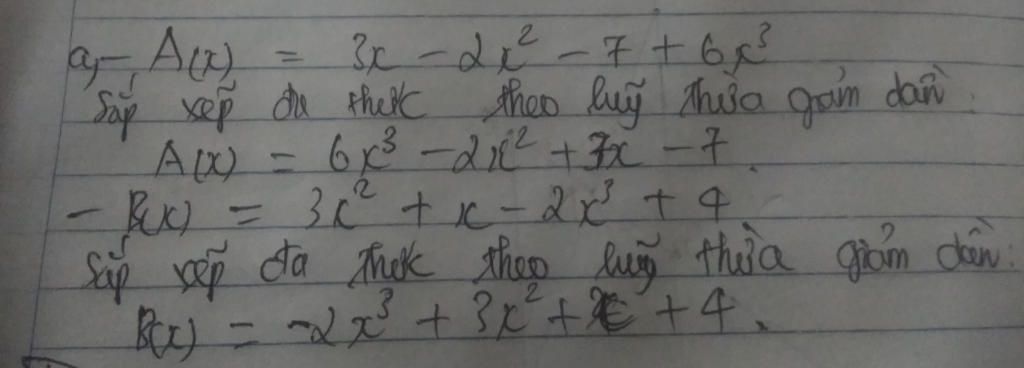 a, - A(x) = 3x - 2x² - 7 + 6x³
Sắp xếp đa thức theo luỹ thừa giảm dần:
A(x) = 6x³ - 2x² + 7x - 7.
- B(x) = 3x² + x - 2x³ + 4
Sắp xếp đa thức theo luỹ thừa giảm dần:
B(x) = -2x³ + 3x² + x + 4.